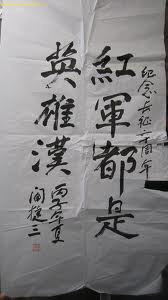 紀念长征六十周年
紅軍都是
英雄漢
丙子年夏